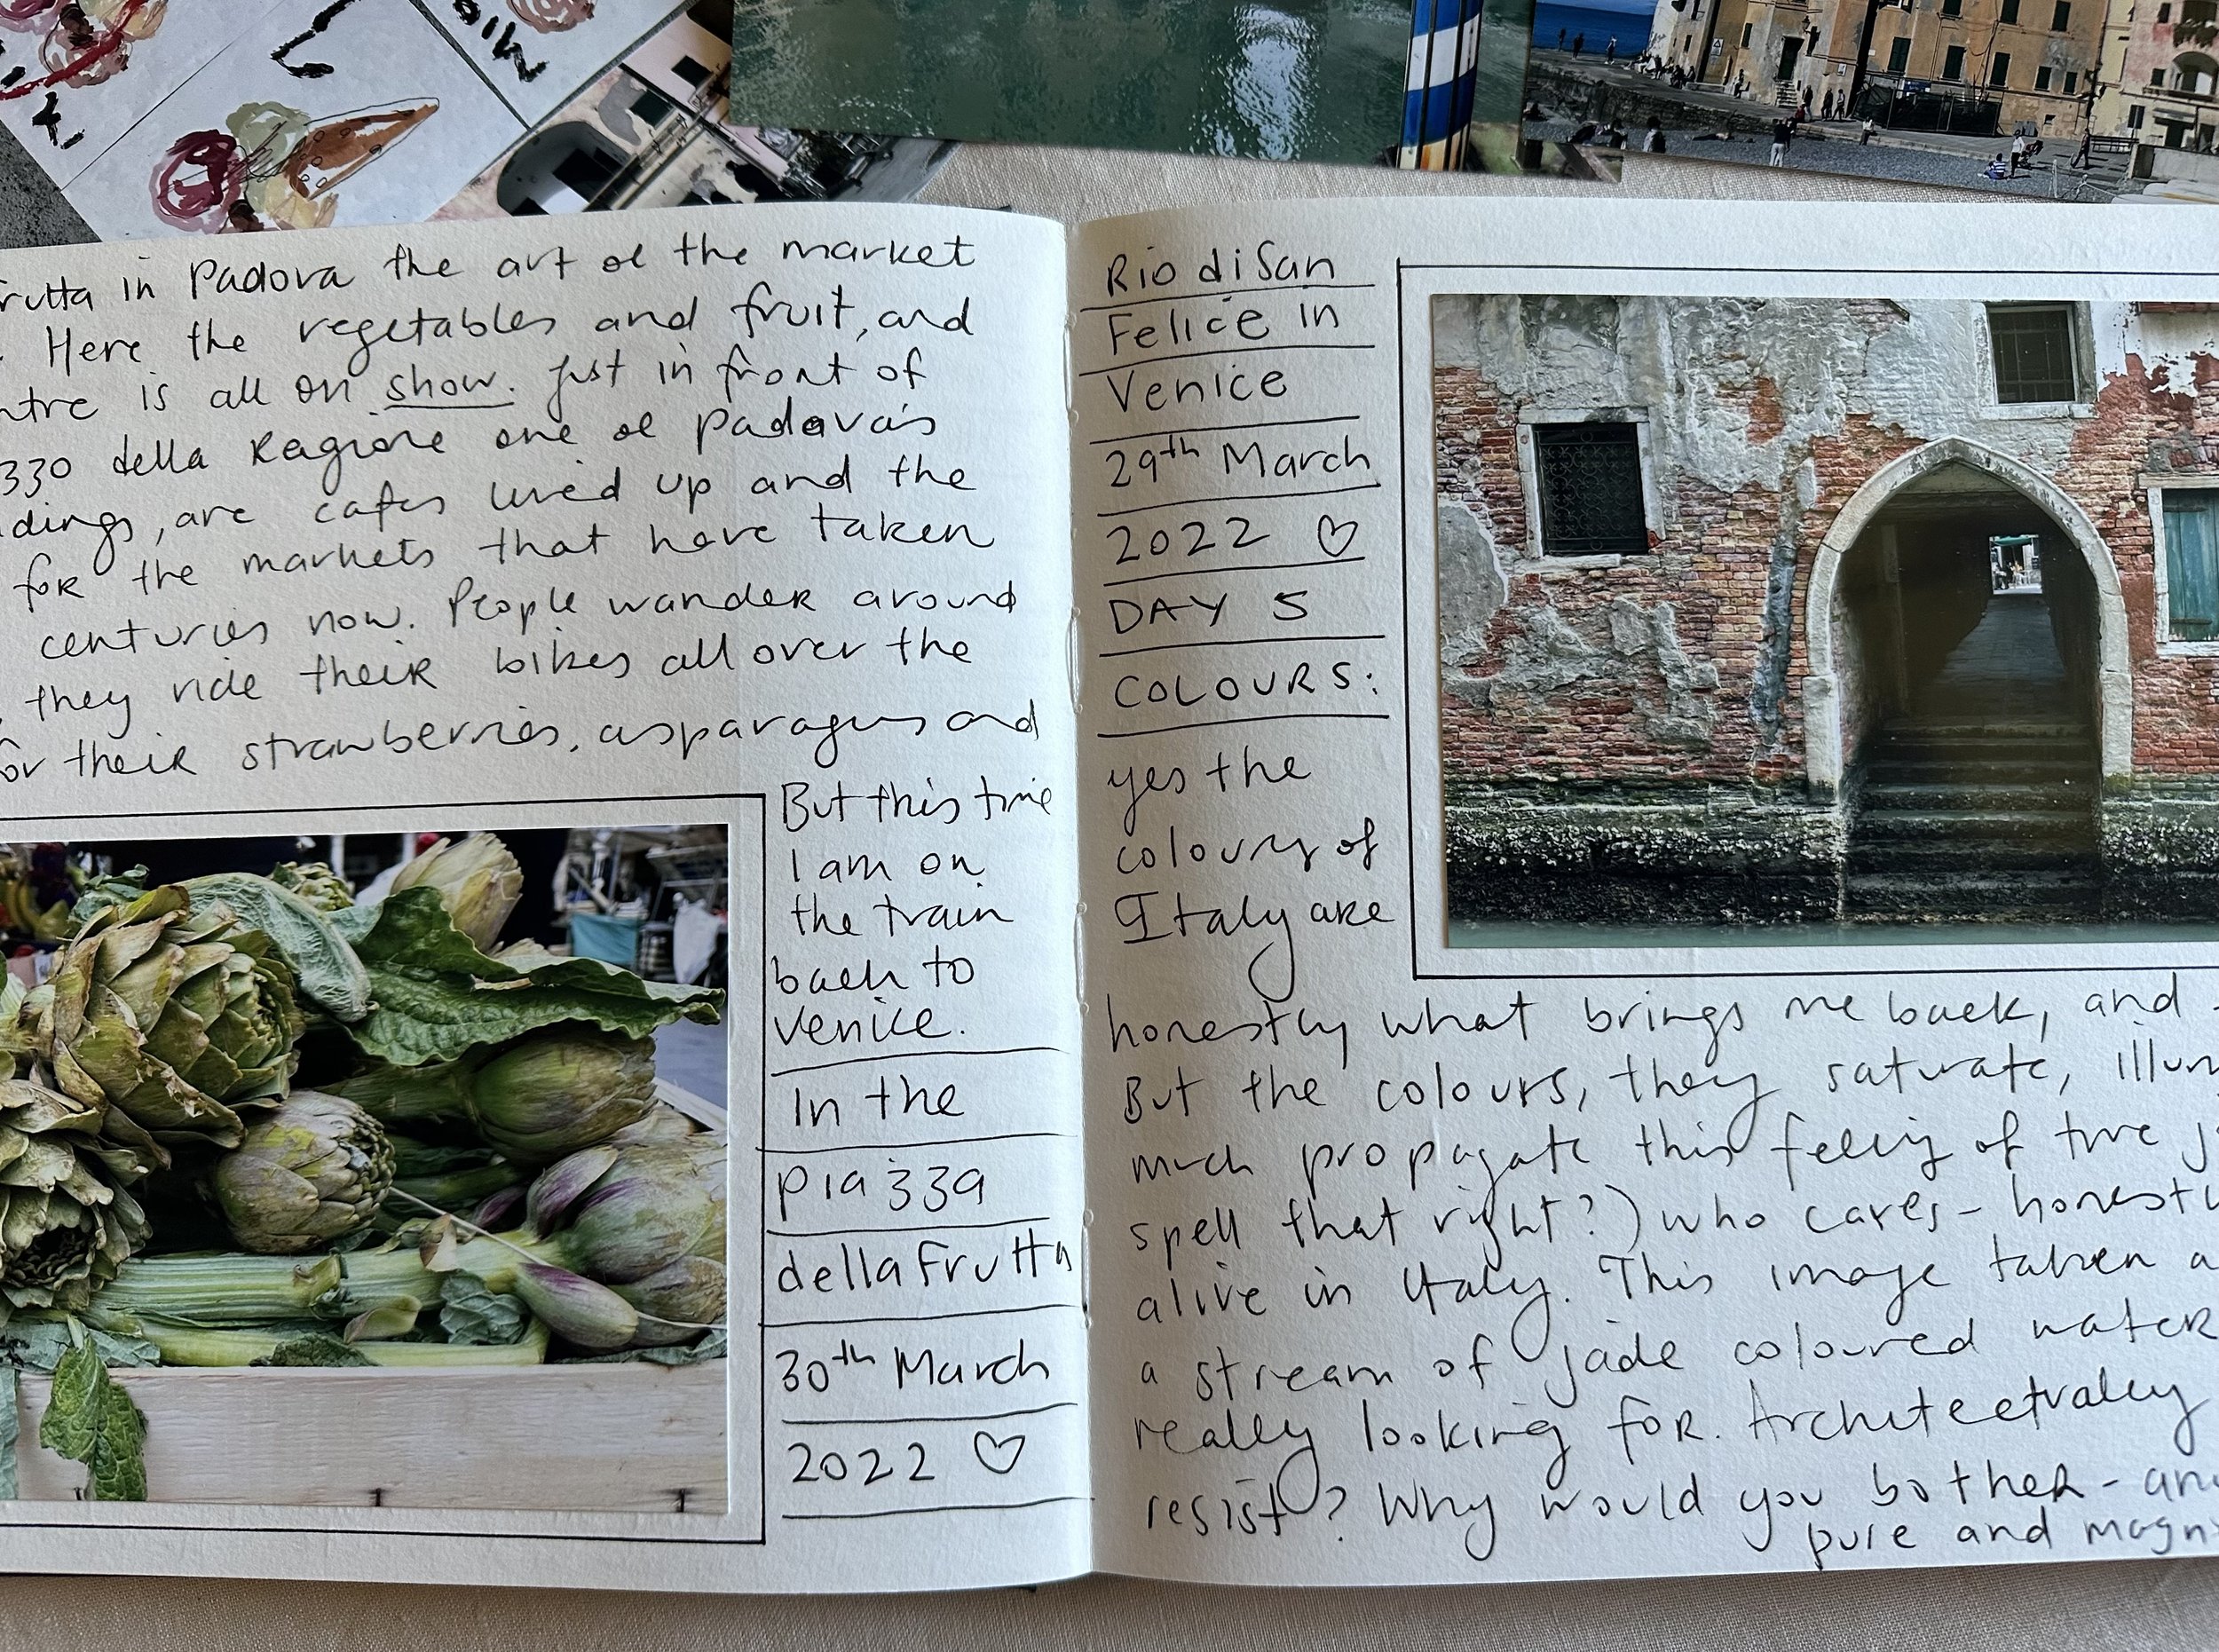 frutta in Padova the art of the market
Here the vegetables and fruit, and
ntre is all on show. Just in front of
330 della Ragione one of Padova's
dings, are cafes lined up and the
for the markets that have taken
centuries now. People wander around
they ride their bikes all over the
for their strawberries, asparagus and
But this time
I am on
the train
back to
Venice.
In the
piazza
della Frutta
30th March
2022 ♡
Rio di San
Felice in
Venice
29th March
2022 ♡
DAY 5
COLOURS:
yes the
colours of
Italy are
honestly what brings me back, and
But the colours, they saturate, illum
much propagate this feeling of true j
spell that right?) who cares - honestly
alive in Italy. This image taken a
a stream of jade coloured water
really looking for. Architecturally
resist? Why would you bother - an
pure and magn